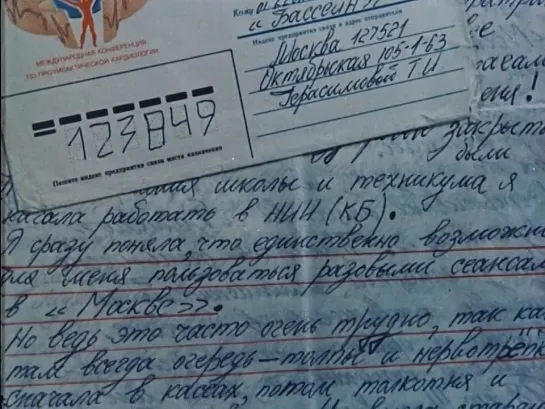 МЕЖДУНАРОДНАЯ КОНФЕРЕНЦИЯ
ПО ПРОФИЛАКТИЧЕСКОЙ КАРДИОЛОГИИ
Кому
« Бассейн »
Индекс предприятия связи и адрес отправителя
Москва 127521
Октябрьская 105-1-63
Герасимовой Т.И.
123849
Пишите индекс предприятия связи места назначения
еня!
закрыть
были
школы и техникума я
начала работать в НИИ (КБ).
Я сразу поняла, что единственно возможно
для меня пользоваться разовыми сеансам
в « Москве».
Но ведь это часто очень трудно, так как
там всегда очередь – толпы и нервотрёпк
сначала в кассах, потом толкотня и